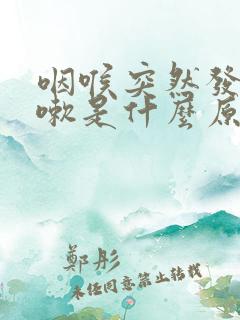 咽喉突然發
嗽是什麼原
鄭彤
未任同意禁止转载